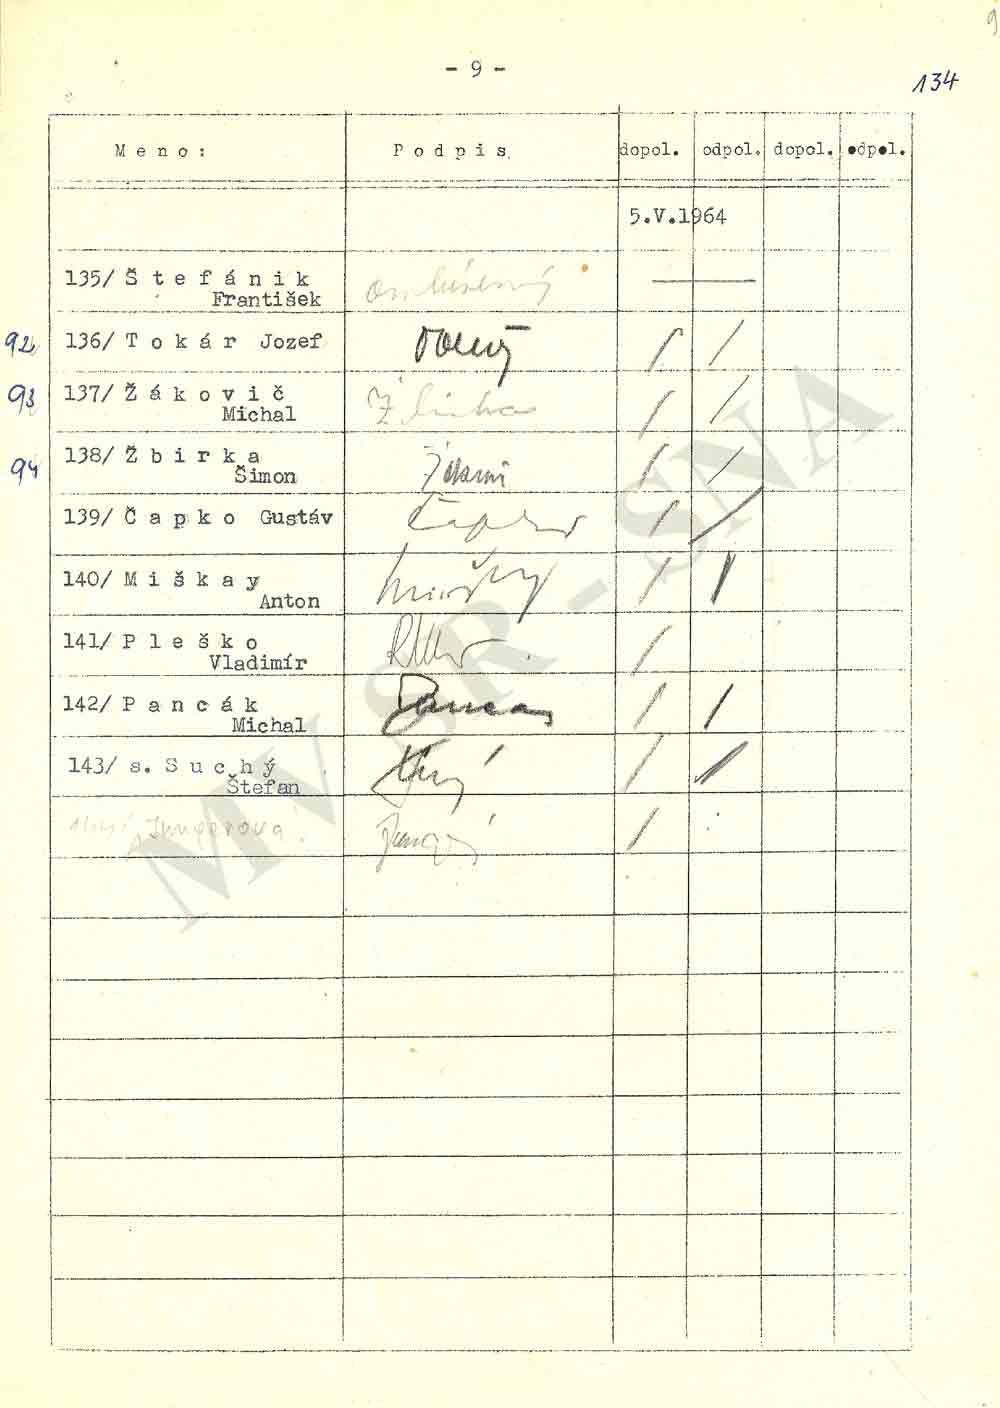 9
- 9 -
134
Meno: Podpis dopol. odpol. dopol. odpol.
5.V.1964
135/ Štefánik
František
92 136/ Tokár Jozef
93 137/ Žákovič
Michal
94 138/ Žbirka
Šimon
139/ Čapko Gustáv
140/ Miškay
Anton
141/ Pleško
Vladimír
142/ Pancák
Michal
143/ s. Suchý
Štefan
Jungerová
MV SR - SNA